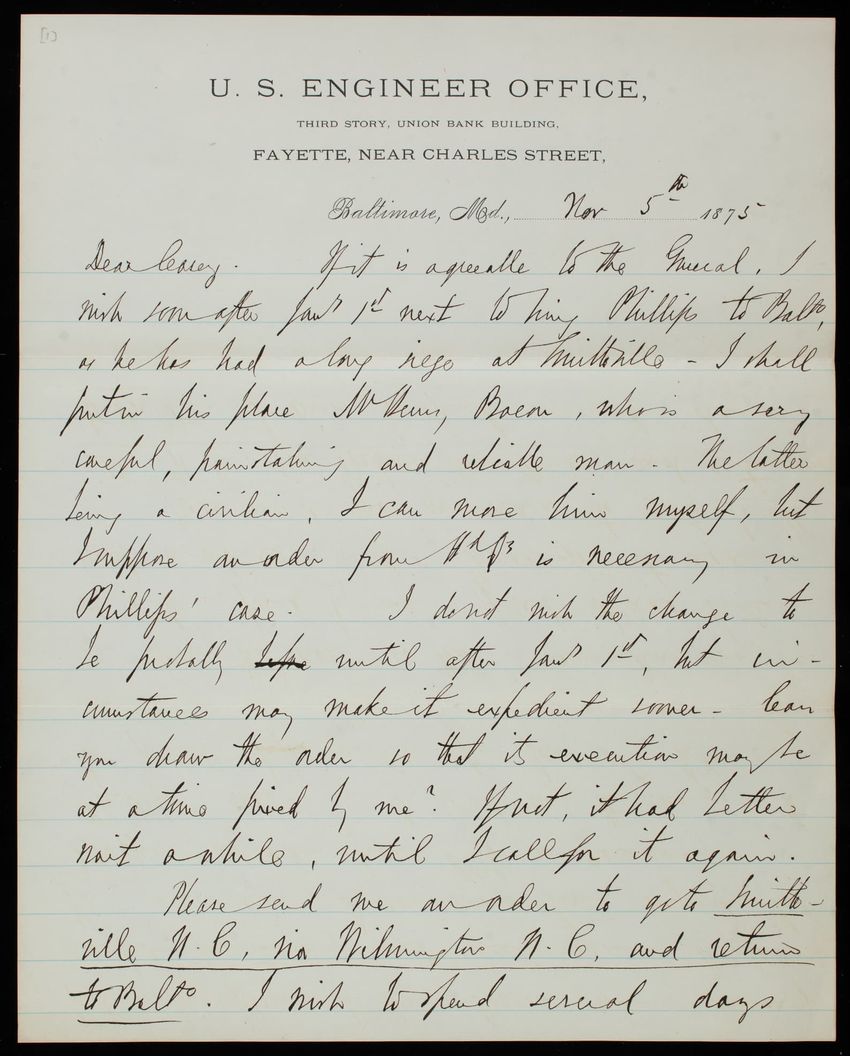 [1]
U. S. ENGINEER OFFICE,
THIRD STORY, UNION BANK BUILDING,
FAYETTE, NEAR CHARLES STREET,
Baltimore, Md., Nov 5th 1875
Dear Casey. If it is agreeable to the General, I
wish soon after Jany 1st next to bring Phillips to Balto,
as he has had a long siege at Smithville - I shall
put in his place Mr Henry Bacon, who is a very
careful, painstaking and reliable man. The latter
being a civilian, I can move him myself, but
I suppose an order from Hdqs is necessary in
Phillips' case. I do not wish the change to
be probably before until after Jany 1st, but cir-
cumstances may make it expedient sooner - Can
you draw the order so that its execution may be
at a time fixed by me? If not, it had better
wait awhile, until I call for it again.
Please send me an order to go to Smith-
ville N. C, via Wilmington N. C, and return
to Balto. I wish to spend several days